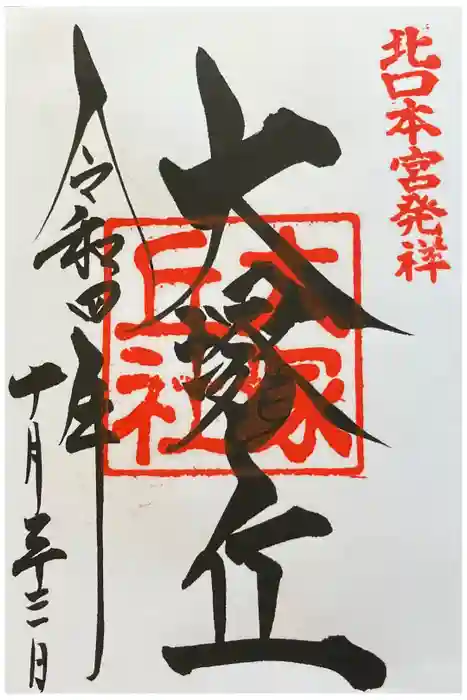 北口本宮発祥
大塚丘
大冢
丘社
令和四年
十月 日